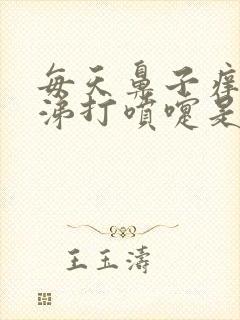 每天鼻子痒
涕打喷嚏是
王玉涛